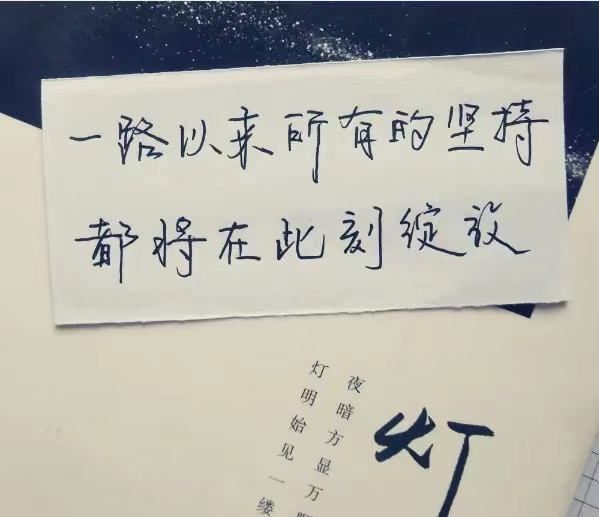 一路以来所有的坚持
都将在此刻绽放
灯
夜暗方显万
灯明始见一缕